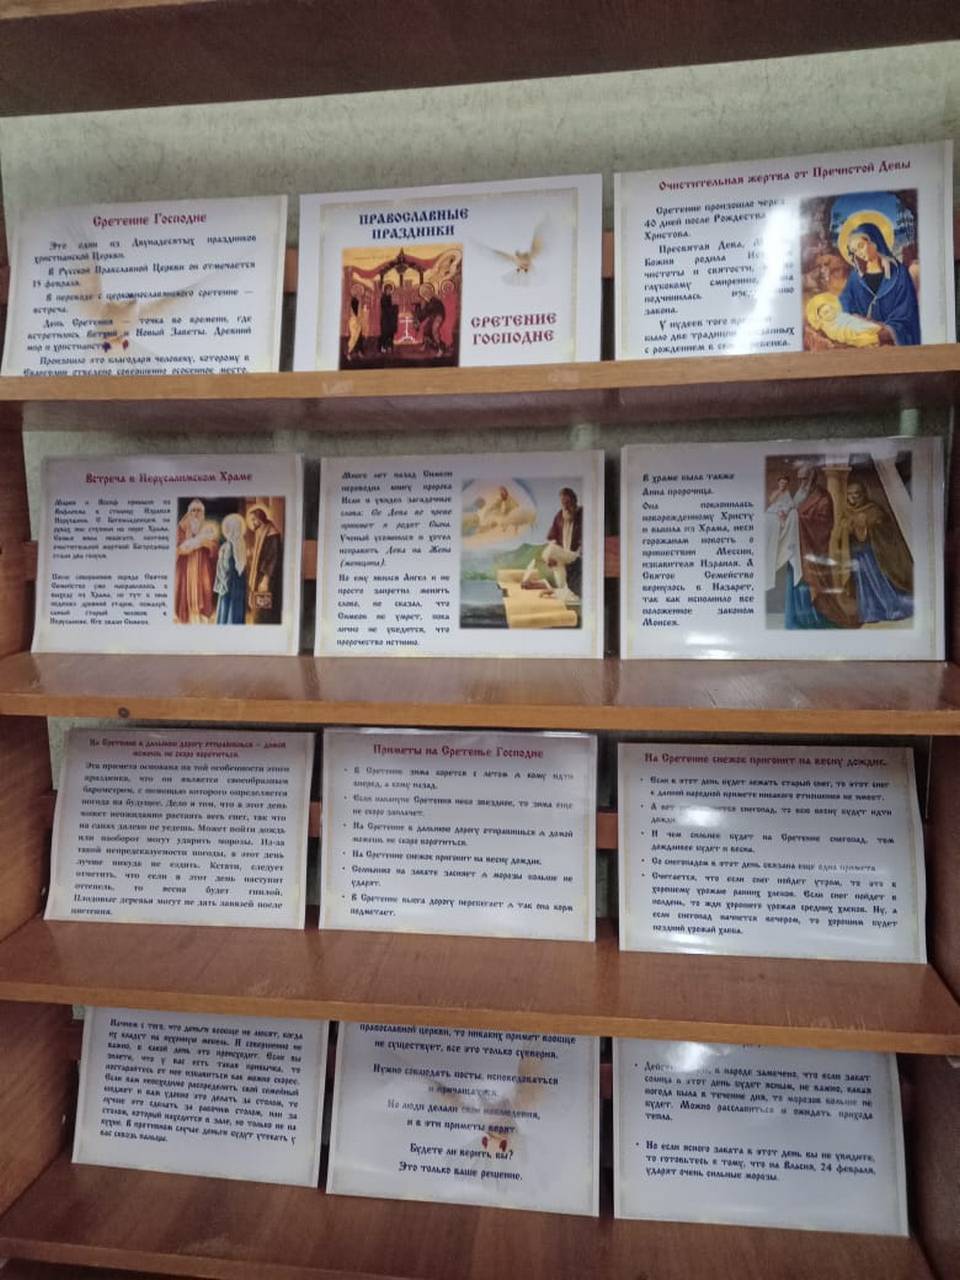 Сретение Господне
Это один из Двунадесятых праздников
христианской Церкви.
В Русской Православной Церкви он отмечается
15 февраля.
В переводе с церковнославянского сретение —
встреча.
День Сретения — точка во времени, где
встретились Ветхий и Новый Заветы. Древний
мир и христианство.
Произошло это благодаря человеку, которому в
Евангелии отведено совершенно особенное место.
ПРАВОСЛАВНЫЕ
ПРАЗДНИКИ
СРЕТЕНИЕ
ГОСПОДНЕ
Очистительная жертва от Пречистой Девы
Сретение произошло через
40 дней после Рождества
Христова.
Пресвятая Дева,
Божия родила
чистоты и святости,
глубокому смирению,
подчинилась
закона.
У иудеев того
было две традиции,
с рождением в
Встреча в Иерусалимском Храме
Мария и Иосиф пришли из
Вифлеема в столицу Израиля
Иерусалим. С Богомладенцем на
руках они ступили на порог Храма.
очистительной жертвой Богородицы
стали два голубя.
После совершения обряда Святое
Семейство уже направлялось к
выходу из Храма, но тут к ним
подошел древний старец, пожалуй,
самый старый человек в
Иерусалиме. Его звали Симеон.
Много лет назад Симеон
переводил книгу пророка
Исаи и увидел загадочные
слова: Се Дева во чреве
приимет и родит Сына.
Ученый усомнился и хотел
исправить Дева на Жена
(женщина).
Но ему явился Ангел и не
просто запретил менять
слова, но сказал, что
Симеон не умрет, пока
лично не убедится, что
пророчество истинно.
В храме была также
Анна пророчица.
Она поклонилась
новорожденному Христу
и вышла из Храма, неся
горожанам новость о
пришествии Мессии,
избавителя Израиля. А
Святое Семейство
вернулось в Назарет,
так как исполнило все
положенное законом
Моисея.
На Сретение в дальнюю дорогу отправишься – домой
можешь не скоро воротиться.
Эта примета основана на той особенности этого
праздника, что он является своеобразным
барометром, с помощью которого определяется
погода на будущее. Дело в том, что в этот день
может неожиданно растаять весь снег, так что
на санях далеко не уедешь. Может пойти дождь
или наоборот могут ударить морозы. Из-за
такой непредсказуемости погоды, в этот день
лучше никуда не ездить. Кстати, следует
отметить, что если в этот день наступит
оттепель, то весна будет гнилой.
Плодовые деревья могут не дать завязей после
цветения.
Приметы на Сретенье Господне
• В Сретение зима борется с летом л кому идти
вперед, а кому назад.
• Если накануне Сретения небо звездное, то зима еще
не скоро заплачет.
• На Сретение в дальнюю дорогу отправишься л домой
можешь не скоро воротиться.
• На Сретение снежок пригонит на весну дождик.
• Солнышко на закате засияет л морозы больше не
ударят.
• В Сретение вьюга дорогу переметает л так она корм
подметает.
На Сретение снежок пригонит на весну дождик.
• Если в этот день будет лежать старый снег, то этот снег
к данной народной примете никакого отношения не имеет.
• А вот снегопад, то всю весну будут идти
дожди
• И чем сильнее будет на Сретение снегопад, тем
дождливее будет и весна.
• Со снегопадом в этот день связана еще одна примета.
• Считается, что если снег пойдет утром, то это к
хорошему урожаю ранних хлебов. Если снег пойдет в
полдень, то жди хорошего урожая средних хлебов. Ну, а
если снегопад начнется вечером, то хорошим будет
поздний урожай хлеба.
Начнем с того, что деньги вообще не любят, когда
их кладут на кухонную мебель. И совершенно не
важно, в какой день это происходит. Если вы
знаете, что у вас есть такая привычка, то
постарайтесь от нее избавиться как можно скорее.
Если вам необходимо распределить свой семейный
бюджет и вам удобно это делать за столом, то
лучше это сделать за рабочим столом, или за
столом, который находится в зале, но только не на
кухне. В противном случае деньги будут утекать у
вас сквозь пальцы.
православной церкви, то никаких примет вообще
не существует, все это только суеверия.
Нужно соблюдать посты, исповедоваться
и причащаться.
Но люди делали свои наблюдения,
и в эти приметы верят.
Будете ли верить вы?
Это только ваше решение.
• в народе замечено, что если закат
солнца в этот день будет ясным, не важно, какая
погода была в течение дня, то морозов больше не
будет. Можно расслабиться и ожидать прихода
тепла.
• Но если ясного заката в этот день вы не увидите,
то готовьтесь к тому, что на Власия, 24 февраля,
ударят очень сильные морозы.